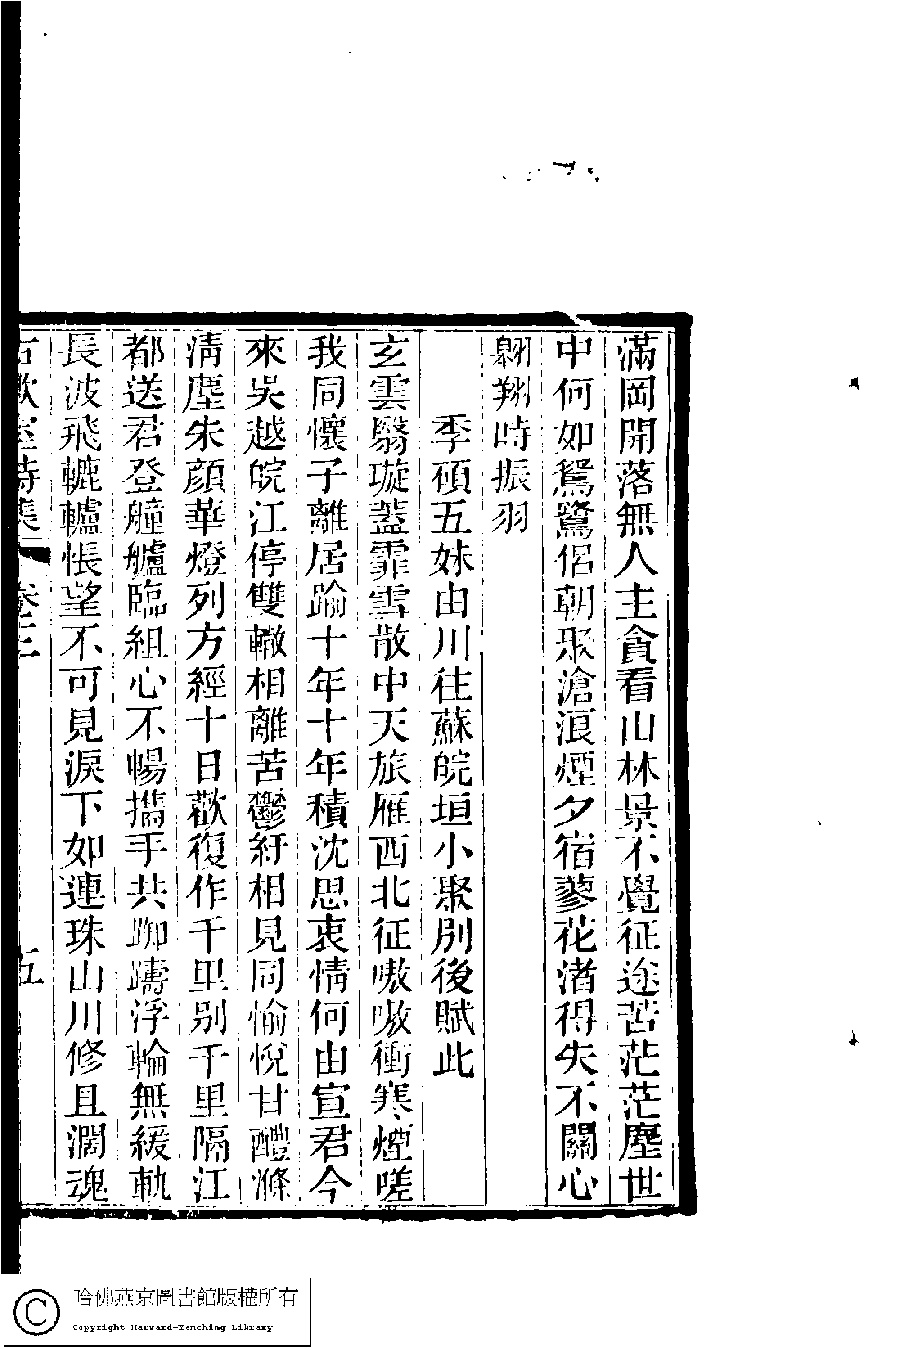 滿岡開落無人主貪看山林景不覺征途苦茫茫塵世
中何如鴛鷺侶朝聚滄浪煙夕宿蓼花渚得失不關心
翱翔時振羽
季碩五妹由川往蘇皖垣小聚別後賦此
玄雲翳璇蓋霏雪散中天旅雁西北征嗷嗷衝寒煙嗟
我同懷子離居踰十年十年積沈思衷情何由宣君今
來吳越皖江停雙轍相離苦鬱紆相見同愉悅甘醴滌
淸塵朱顏華燈列方經十日歡復作千里別千里隔江
都送君登艟艫臨組心不暢攜手共踟躊浮輪無緩軌
長波飛轆轤悵望不可見淚下如連珠山川修且濶魂
詩集
五
哈佛燕京圖書館版權所有
Copyright Harvard-Yenching Library